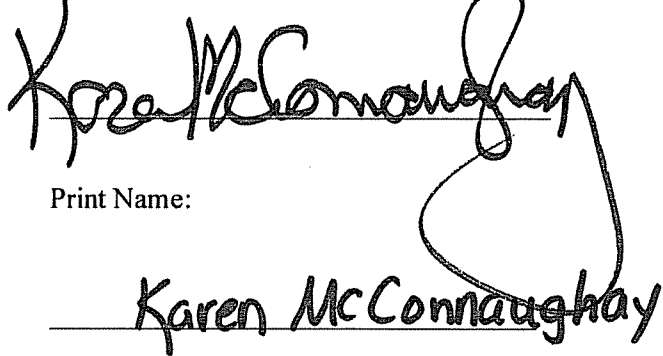 Karen McConnaughay
Print Name:
Karen McConnaughay